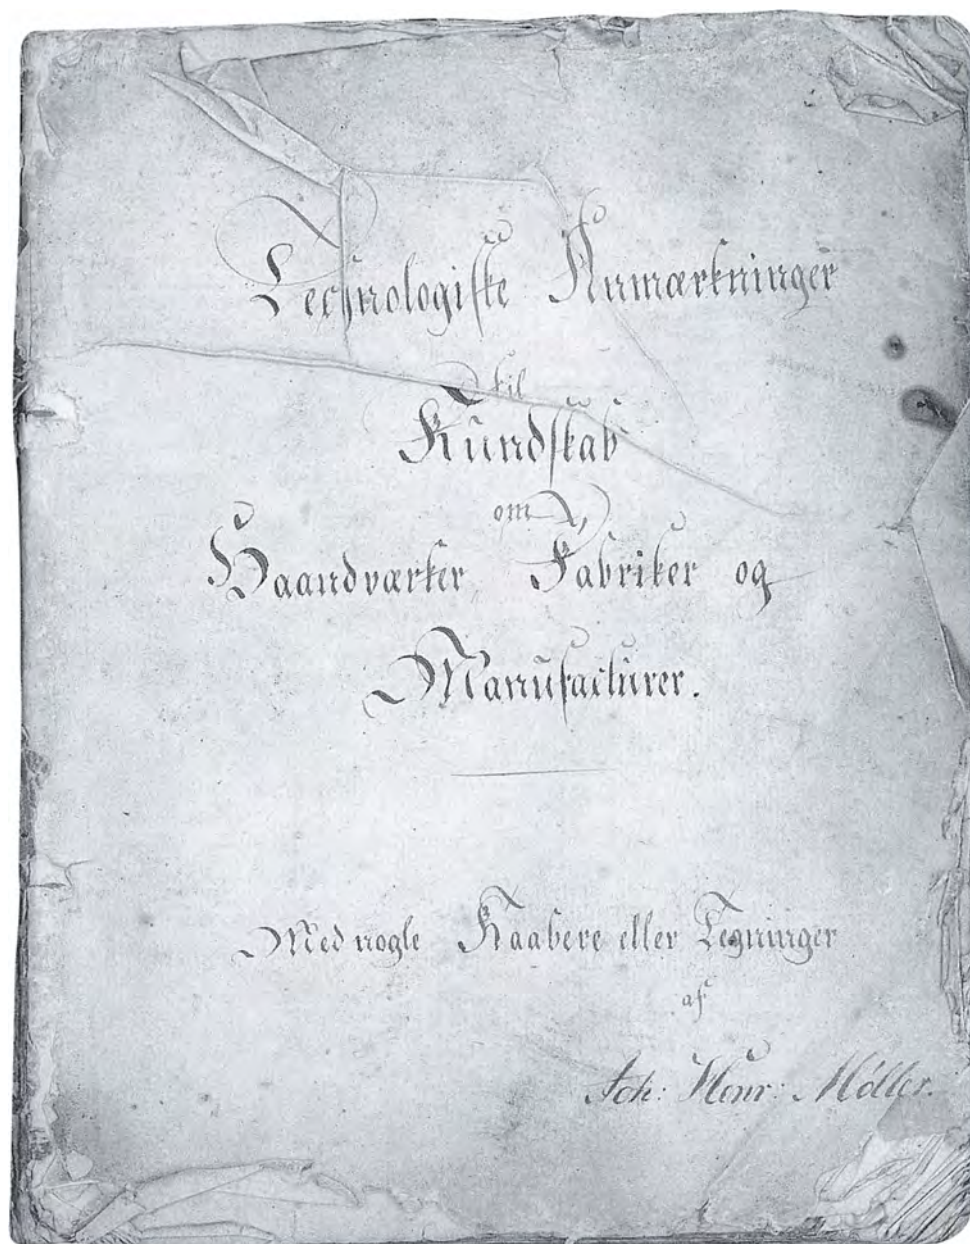 Technologiske Anmærkninger
til
Kundskab
om
Haandværker, Fabriker og
Manufacturer.
Med nogle Kaabere eller Tegninger
af
Joh: Henr: Møller.